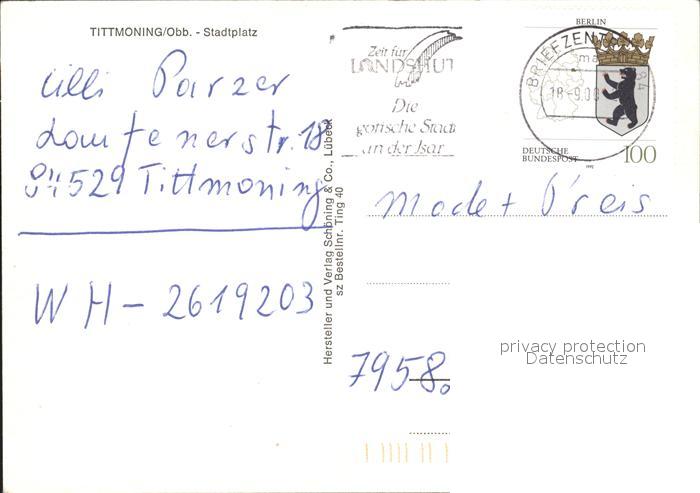 TITTMONING/Obb. - Stadtplatz
Lilli Parzer
Laufenerstr. 18
84529 Tittmoning
WH - 2619203
Hersteller und Verlag Schöning & Co., Lübeck
sz Bestellnr. Ting 40
Zeit für
LANDSHUT
Die
gotische Stadt
an der Isar
BRIEFZENT
18-9.00
BERLIN
DEUTSCHE
BUNDESPOST
1992
100
Mode + Preis
7958
privacy protection
Datenschutz